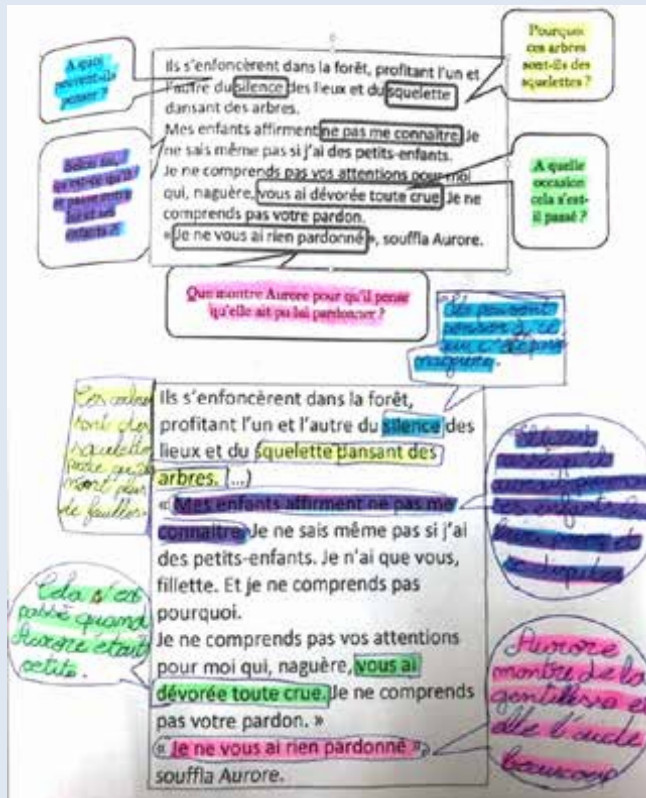 A quoi
peuvent-ils
penser ?
Ils s'enfoncèrent dans la forêt, profitant l'un et
l'autre du silence des lieux et du squelette
dansant des arbres.
Mes enfants affirment ne pas me connaître. Je
ne sais même pas si j'ai des petits-enfants.
Je ne comprends pas vos attentions pour moi
qui, naguère, vous ai dévorée toute crue. Je ne
comprends pas votre pardon.
« Je ne vous ai rien pardonné », souffla Aurore.
Pourquoi
ces arbres
sont-ils des
squelettes ?
Selon toi,
qu'est-ce qu'il
se passe entre
lui et ses
enfants ?
A quelle
occasion
cela s'est-
il passé ?
Que montre Aurore pour qu'il pense
qu'elle ait pu lui pardonner ?
Ils peuvent
penser à ce
naguère.
Ces arbres
sont des
squelettes
parce qu'ils
n'ont plus
de feuilles.
Ils s'enfoncèrent dans la forêt,
profitant l'un et l'autre du silence des
lieux et du squelette dansant des
arbres. (...)
« Mes enfants affirment ne pas me
connaître. Je ne sais même pas si j'ai
des petits-enfants. Je n'ai que vous,
fillette. Et je ne comprends pas
pourquoi.
Je ne comprends pas vos attentions
pour moi qui, naguère, vous ai
dévorée toute crue. Je ne comprends
pas votre pardon. »
« Je ne vous ai rien pardonné »,
souffla Aurore.
les enfants
Cela s'est
passé quand
Aurore était
petite.
Aurore
montre de la
gentillesse et
elle l'aide
beaucoup